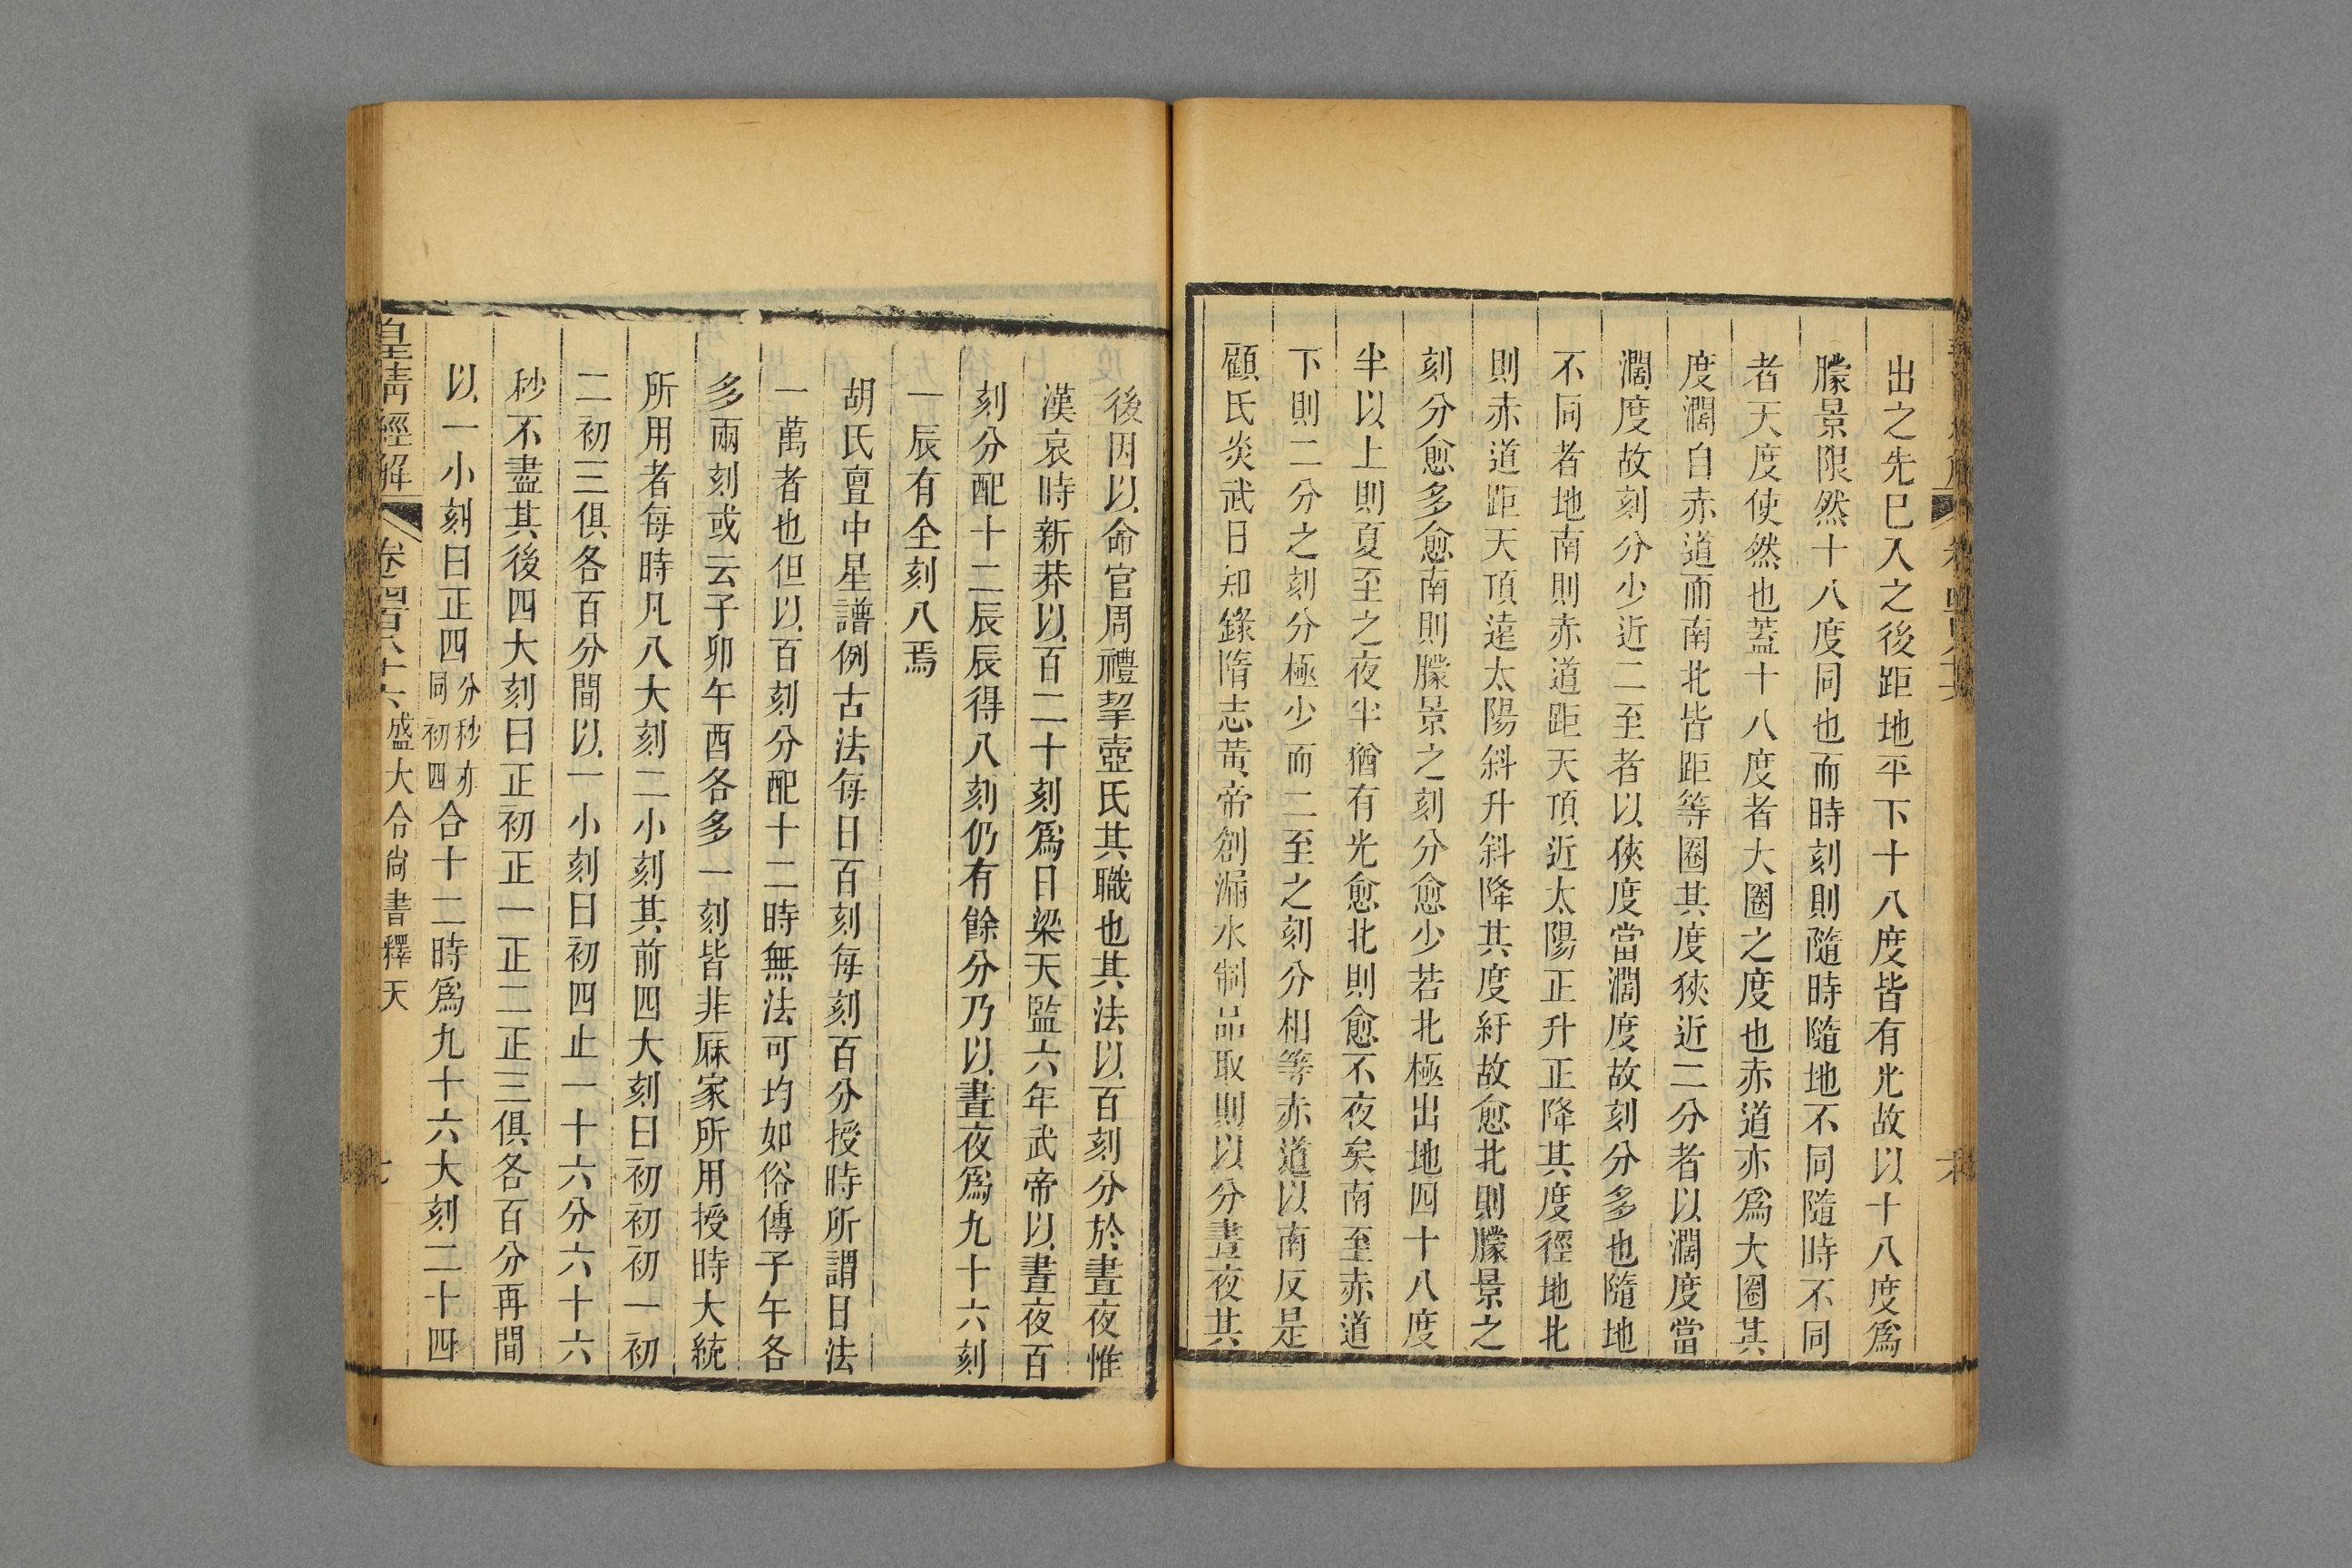 出之先巳入之後距地平下十八度皆有光故以十八度爲
朦景限然十八度同也而時刻則隨時隨地不同隨時不同
者天度使然也蓋十八度者大圈之度也赤道亦爲大圈其
度濶自赤道而南北皆距等圈其度狹近二分者以濶度當
濶度故刻分少近二至者以狹度當濶度故刻分多也隨地
不同者地南則赤道距天頂近太陽正升正降其度徑地北
則赤道距天頂遠太陽斜升斜降其度紆故愈北則朦景之
刻分愈多愈南則朦景之刻分愈少若北極出地四十八度
半以上則夏至之夜半猶有光愈北則愈不夜矣南至赤道
下則二分之刻分極少而二至之刻分相等赤道以南反是
顧氏炎武日知錄隋志黃帝創漏水制品取則以分晝夜其
後因以命官周禮挈壺氏其職也其法以百刻分於晝夜惟
漢哀時新莽以百二十刻爲日梁天監六年武帝以晝夜百
刻分配十二辰辰得八刻仍有餘分乃以晝夜爲九十六刻
一辰有全刻八焉
胡氏亶中星譜例古法每日百刻每刻百分授時所謂日法
一萬者也但以百刻分配十二時無法可均如俗傳子午各
多兩刻或云子卯午酉各多一刻皆非厤家所用授時大統
所用者每時凡八大刻二小刻其前四大刻曰初初初一初
二初三俱各百分間以一小刻曰初四止一十六分六十六
秒不盡其後四大刻曰正初正一正二正三俱各百分再間
以一小刻曰正四分秒亦同初四合十二時爲九十六大刻二十四
皇淸經解 卷四百八十六 盛大令尚書釋天